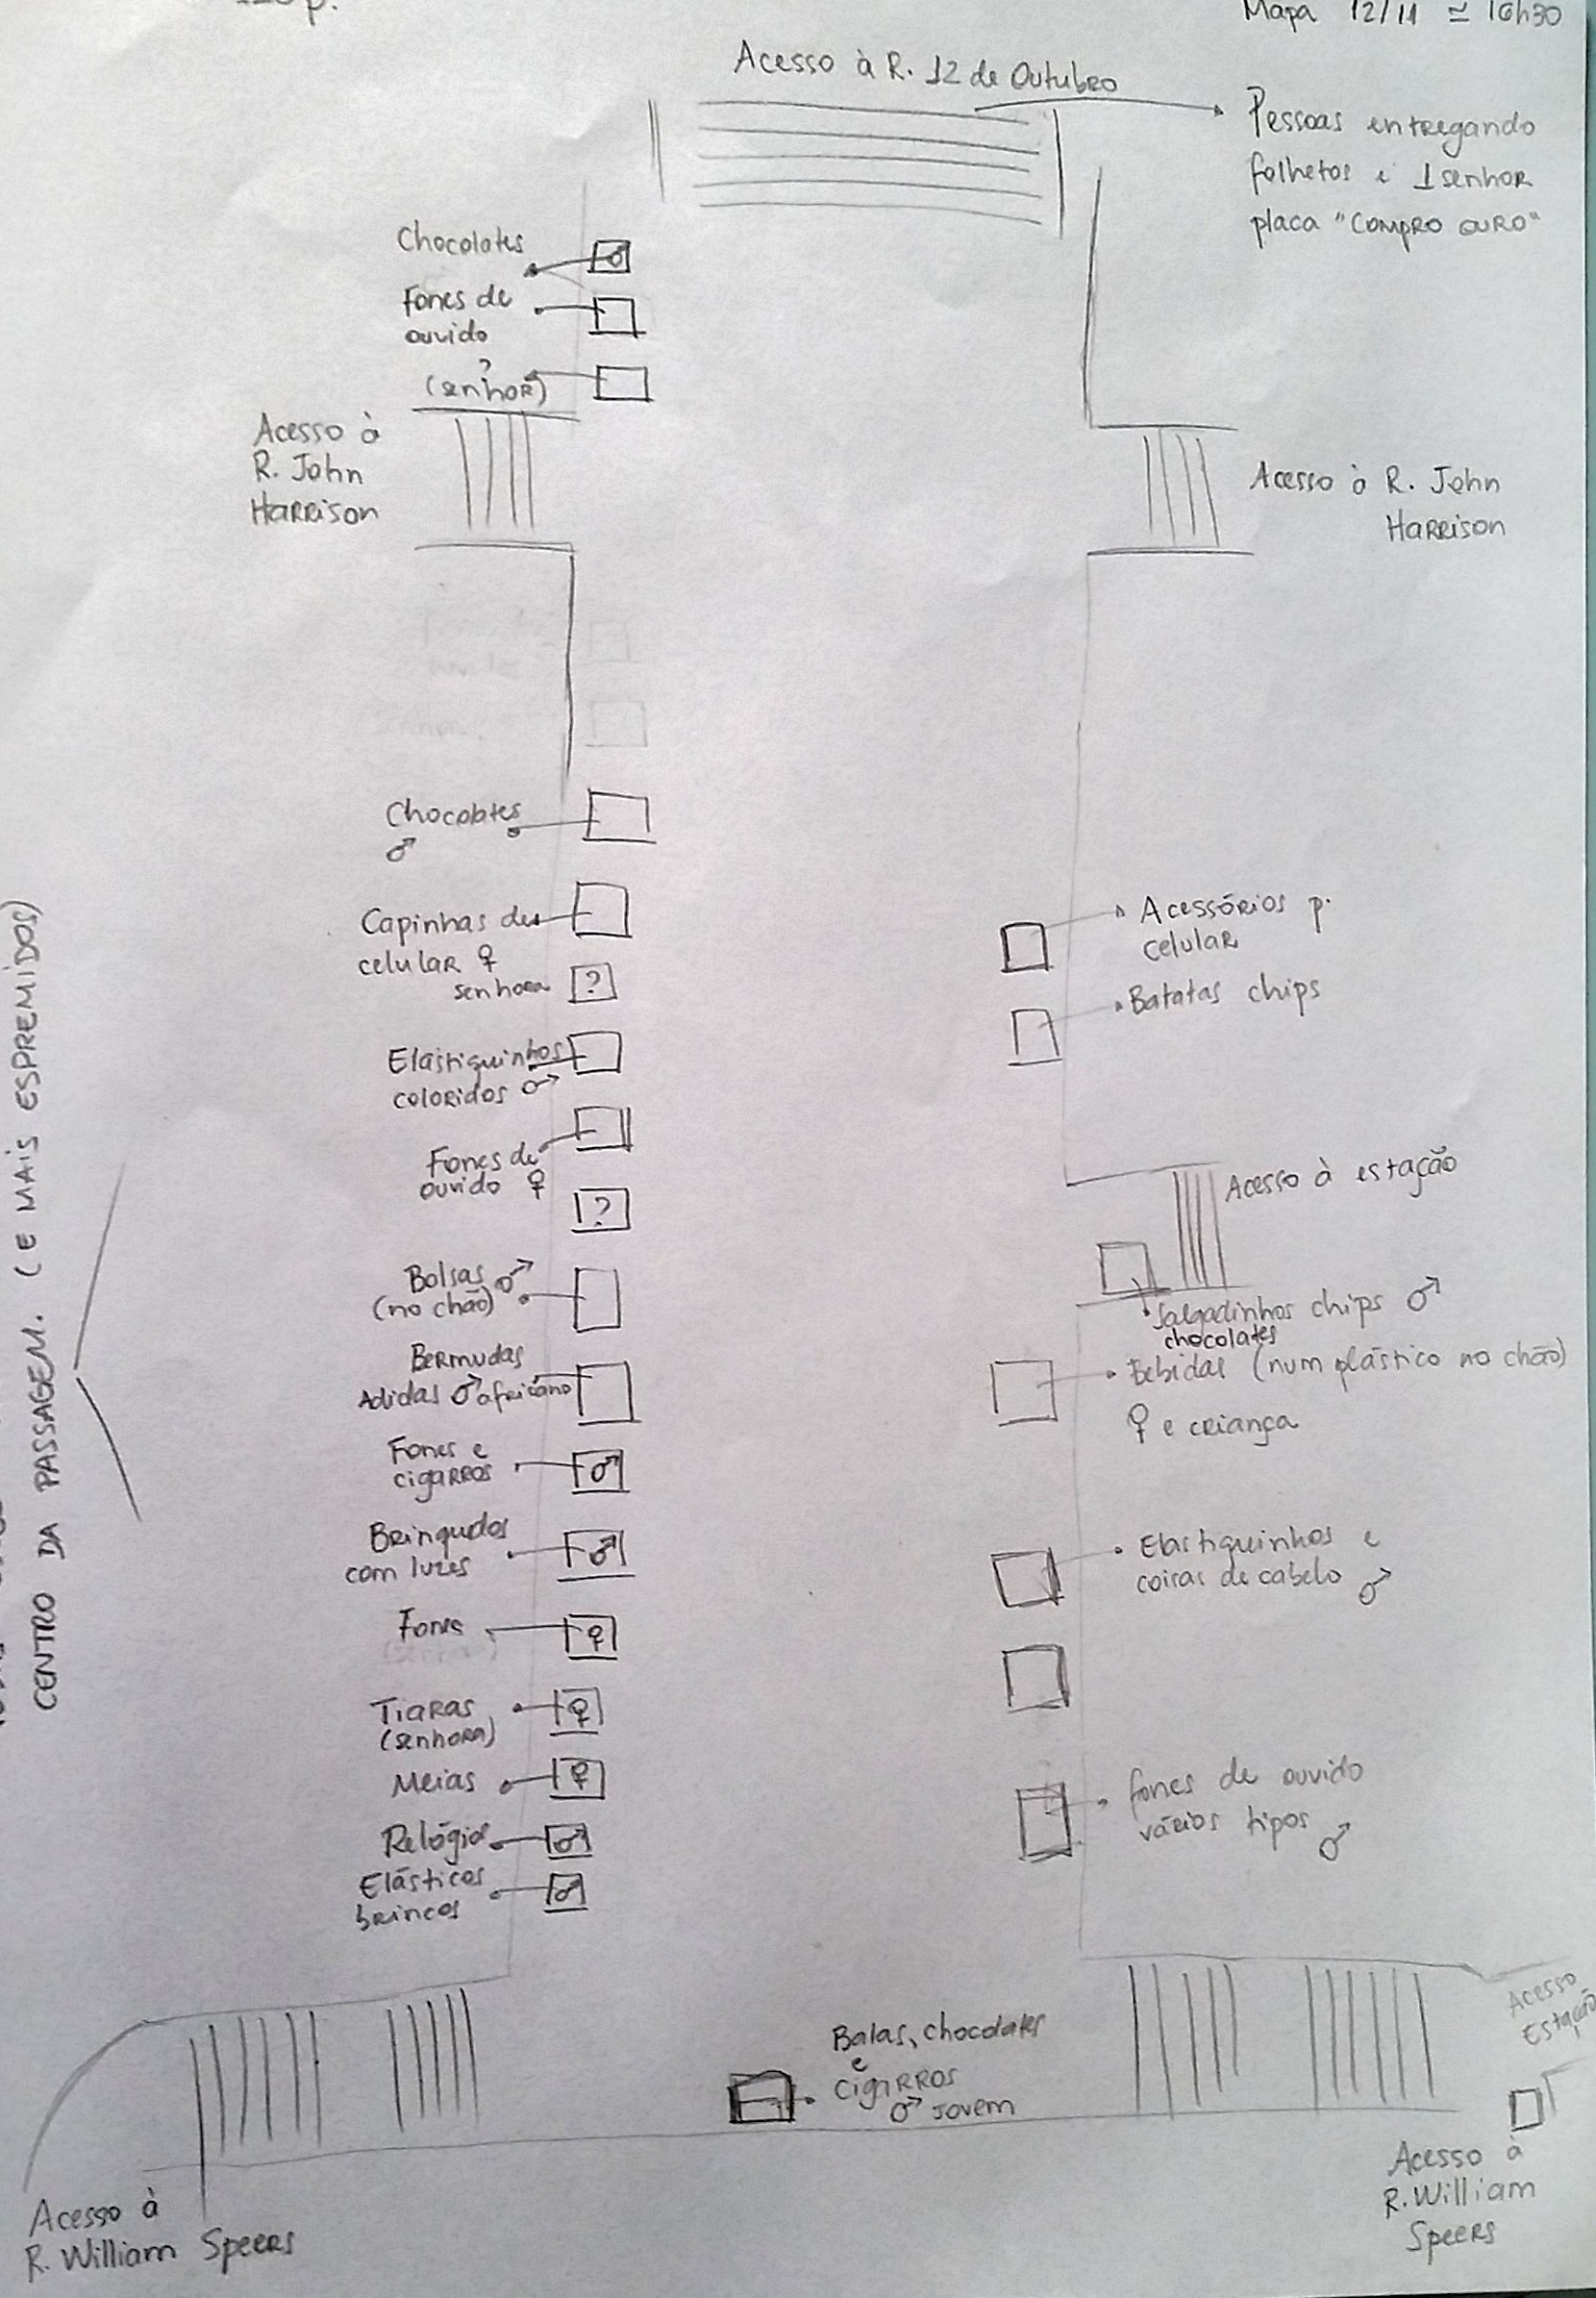 Mapa 12/11 ≃ 16h30
Acesso à R. 12 de Outubro
Pessoas entregando
folhetos e 1 senhor
placa "COMPRO OURO"
Chocolates
♂
Fones de
ouvido
?
(senhor)
Acesso à
R. John
Harrison
Acesso à R. John
Harrison
Chocolates
♂
Capinhas de
celular ♀
senhora
?
Elastiquinhos
coloridos ♂
Fones de
ouvido ♀
?
Bolsas ♂
(no chão)
Bermudas
Adidas ♂ africano
Fones e
cigarros
♂
Brinquedos
com luzes
♂
Fones
♀
Tiaras
(senhora)
♀
Meias
♀
Relógios
♂
Elásticos
brincos
♂
Acessórios p.
celular
Batatas chips
Acesso à estação
Salgadinhos chips ♂
chocolates
Bebidas (num plástico no chão)
♀ e criança
Elastiquinhos e
coisas de cabelo ♂
fones de ouvido
vários tipos ♂
Acesso
Estação
Balas, chocolates
e
cigarros
♂ jovem
Acesso à
R. William Speers
Acesso à
R. William
Speers
CENTRO DA PASSAGEM. (E MAIS ESPREMIDOS)